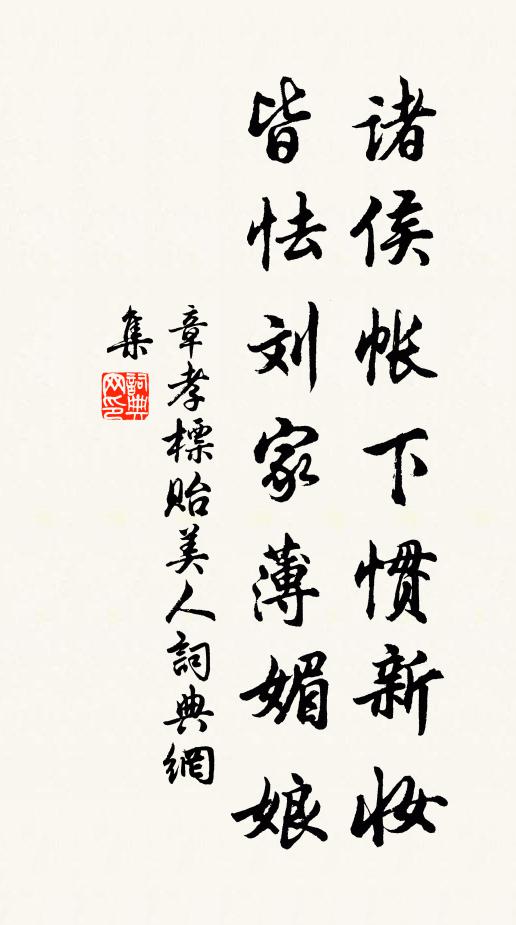 诸侯帐下惯新妆
皆怯刘家薄媚娘
章孝標貽美人詞典網
集
詞典
网印